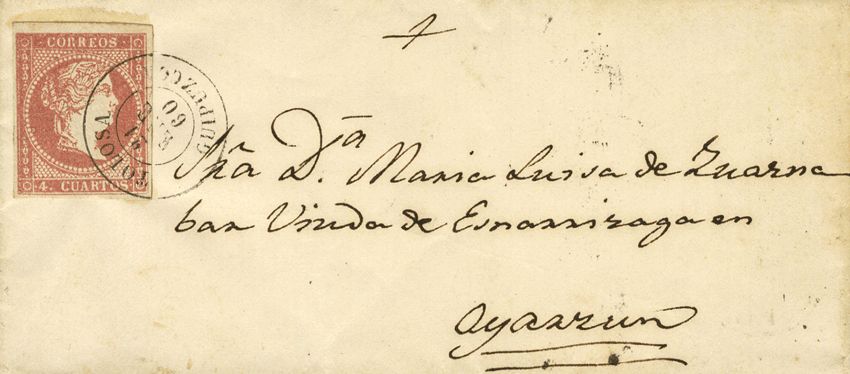 CORREOS
4. CUARTOS
TOLOSA GUIPUZCOA
60
Sra. Dª. Maria Luisa de Zuarna
bar Viuda de Esnarrizaga en
Oyarzun